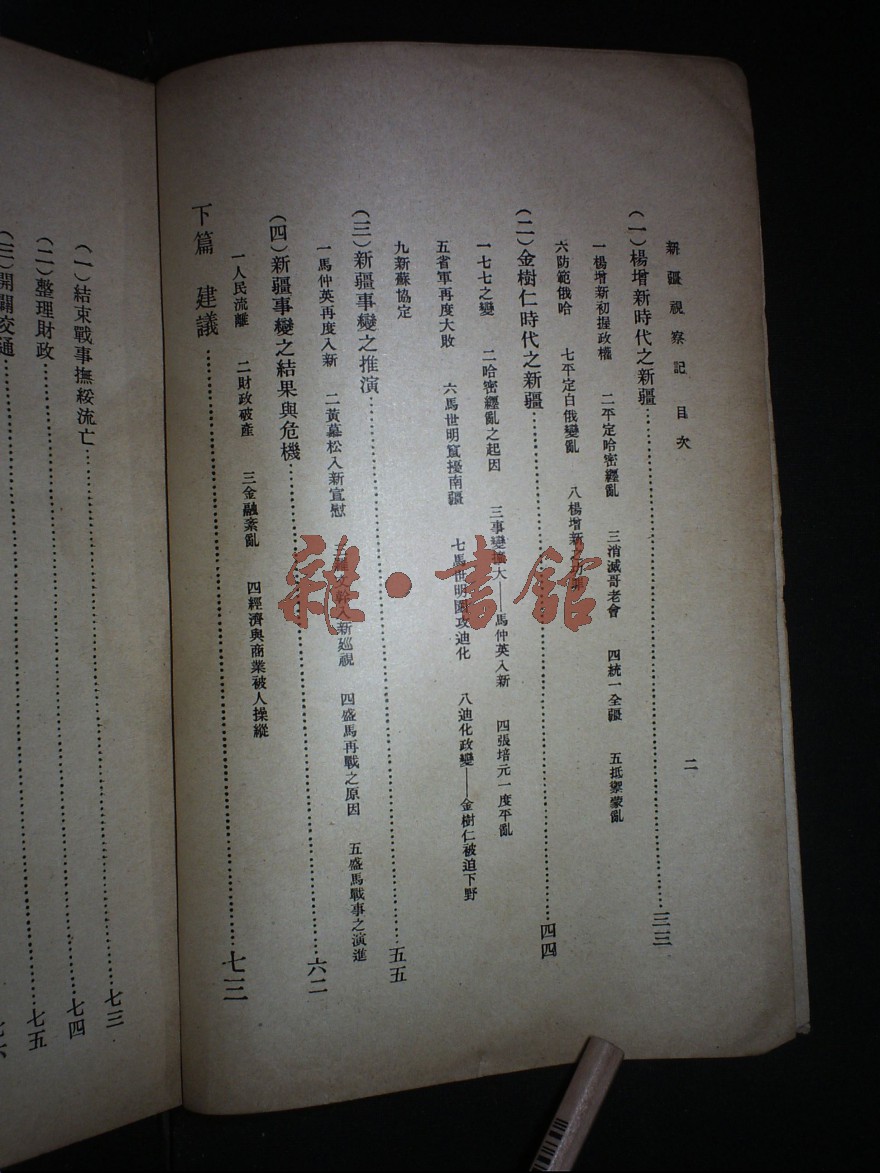 新疆視察記 目次 二
(一)楊增新時代之新疆……三三
一楊增新初握政權 二平定哈密纏亂 三消滅哥老會 四統一全疆 五抵禦蒙亂
六防範俄哈 七平定白俄變亂 八楊增新
(二)金樹仁時代之新疆……四四
一七七之變 二哈密纏亂之起因 三事變擴大——馬仲英入新 四張培元一度平亂
五省軍再度大敗 六馬世明竄擾南疆 七馬世明圍攻迪化 八迪化政變——金樹仁被迫下野
九新蘇協定
(三)新疆事變之推演……五五
一馬仲英再度入新 二黃慕松入新宣慰 三羅文幹入新巡視 四盛馬再戰之原因 五盛馬戰事之演進
(四)新疆事變之結果與危機……六二
一人民流離 二財政破產 三金融紊亂 四經濟與商業被人操縱
下篇 建議……七三
(一)結束戰事撫綏流亡……七三
(二)整理財政……七四
(三)開闢交通……七五
七六
雜·書館